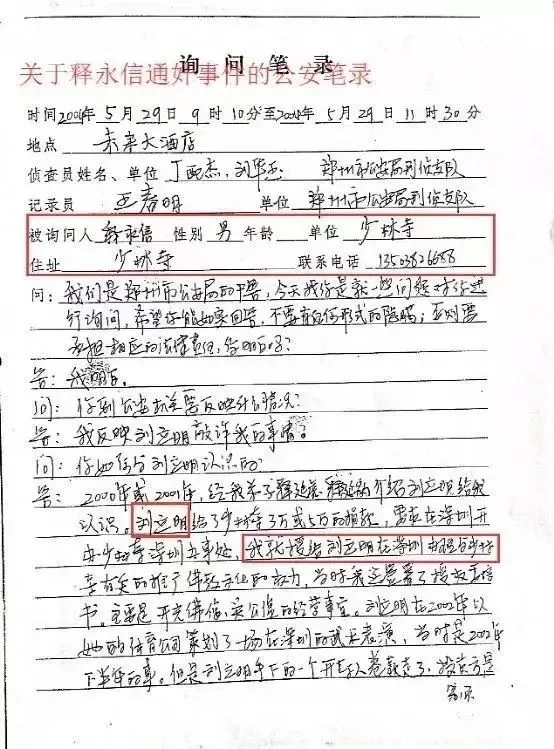 询问笔录
关于释永信通奸事件的公安笔录
时间2004年5月29日9时10分至2004年5月29日11时30分
地点 未来大酒店
侦查员姓名、单位 丁 杰、刘华 郑州市公安局刑侦支队
记录员 王春明 单位 郑州市公安局刑侦支队
被询问人 释永信 性别 男 年龄 单位 少林寺
住址 少林寺 联系电话
问:我们是郑州市公安局的干警,今天我们是就一些问题对你进
行询问,希望你能如实回答,不要有任何形式的隐瞒;否则要
承担相应的法律责任,你明白吗?
答:我明白。
问:你到公安机关要反映什么情况?
答:我反映刘立明敲诈我的事情。
问:你如何与刘立明认识的
答:2000年或2001年,经我弟子释延 介绍刘立明给我
认识。刘立明给了少林寺3万或5万的捐款,要求在深圳开
办少林寺深圳办事处。我就授给刘立明在深圳办理与少林
寺有关的推广佛教文化的权力,当时我还签署了授权委托
书。主要是开光佛像, 的经营事宜。刘立明在2002年以
她的体育公司策划了一场在深圳的武术表演,当时是2002年
下半年的事。但是刘立明手下的一个 人卷款走了,投资方是